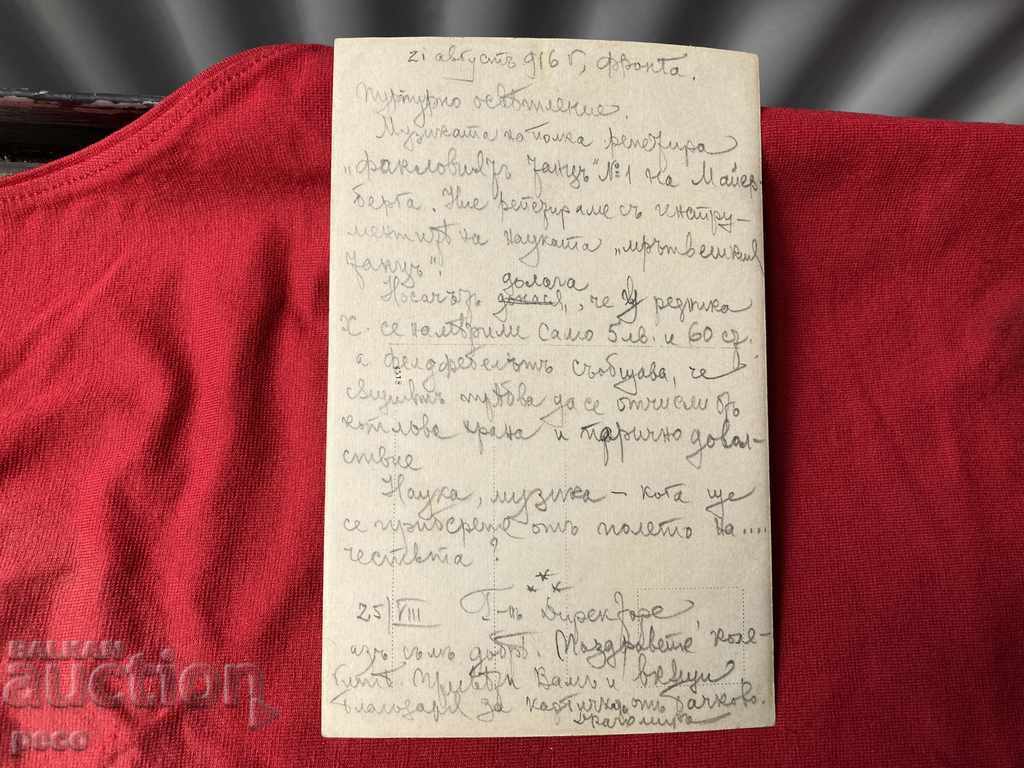 21 августъ 916 г, фронта.
Пурпурно освѣтление.
Музиката на полка репетира
„факловиятъ танцъ" №1 на Майер-
берга. Ние репетираме съ инстру-
ментитѣ на науката „мрътвешкия
танцъ".
долага
Носачътъ, че у редника
Х. се намѣрили само 5 лв. и 60 ст.
а фелдфебелътъ съобщава, че
сѫщиятъ трѣбва да се отчисли отъ
котлова храна и парично довол-
ствие
Наука, музика – кога ще
се приберете отъ полето на ....
честьта?
***
25/VIII Г-нъ Директоре,
азъ съмъ добрѣ. Поздравете коле-
гитѣ. Привѣти Вамъ и вкѫщи
Благодаря за картичка отъ Бачково.
Драгомиръ
1518
BALKAN
auction
peco